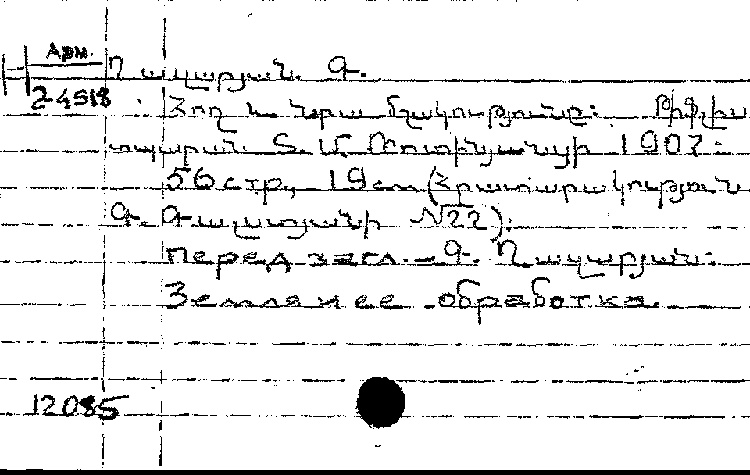 Арм.
Ղազարյան. Գ.
2-4518
Հող և նրա մշակությունը: Թիֆլիս
տպարան. Տ. Մ. Ռոտինյանցի 1907:
56 стр., 19 см (Հրատարակություն
Գ. Գալստյանի №22):
перед загл. – Գ. Ղազարյան:
Земля и ее обработка.
12085